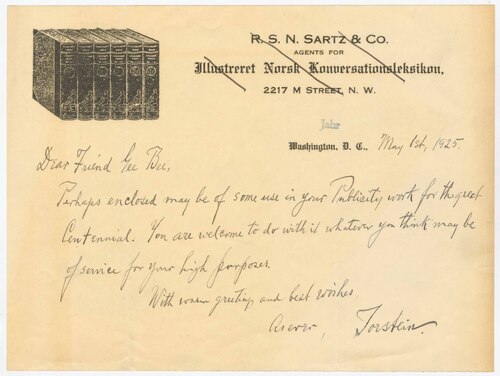 R. S. N. SARTZ & CO.
AGENTS FOR
Illustreret Norsk Konversationsleksikon,
2217 M STREET, N. W.
Jahr
Washington, D. C., May 1st, 1925.
Dear Friend Gee Bee,
Perhaps enclosed may be of some use in your Publicity work for the great
Centennial. You are welcome to do with it whatever you think may be
of service for your high purposes.
With warm greetings and best wishes
As ever, Torstein.